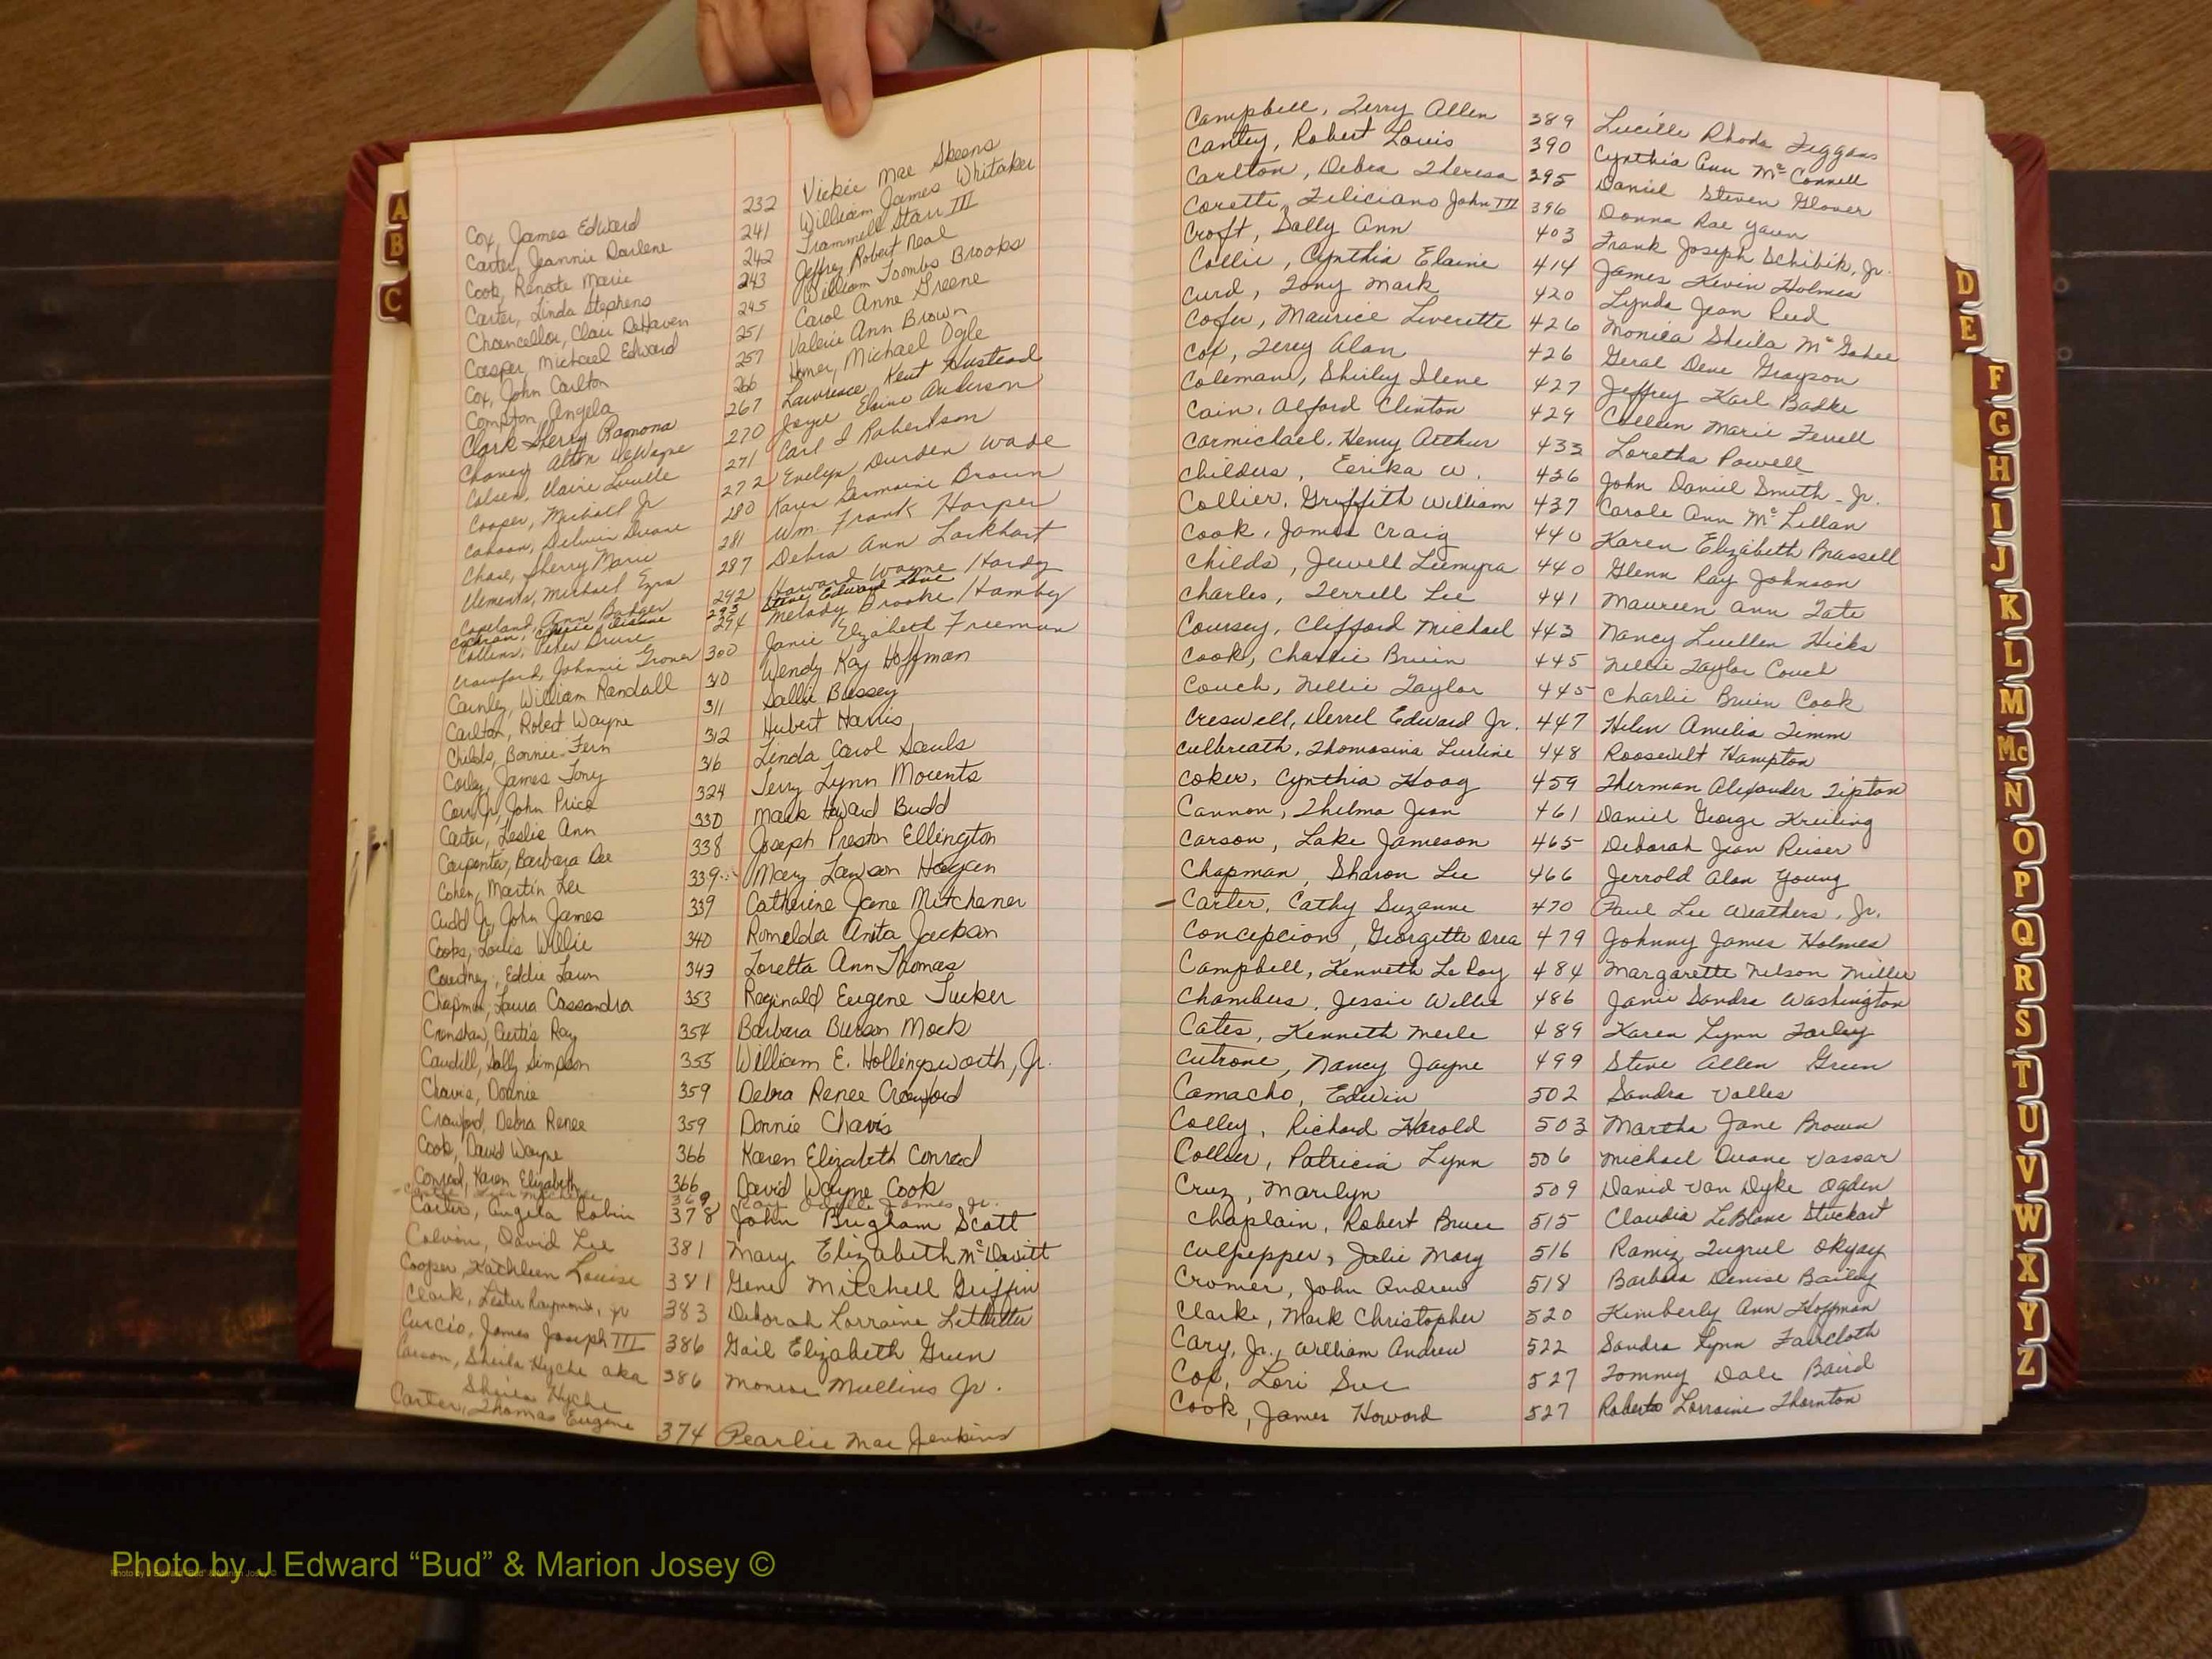 Cox, James Edward 232 Vickie Mae Skeens
Carter, Jeannie Darlene 241 William James Whitaker
Cook, Renate Marie 242 Trammell Starr III
Carter, Linda Stephens 243 Jeffrey Robert Neal
Chancellor, Clair DeHaven 245 William Toombs Brooks
Casper, Michael Edward 251 Carol Anne Greene
Cox, John Carlton 257 Valerie Ann Brown
Compton, Angela 266 Homer, Michael Ogle
Clark Sherry Ramona 267 Lawrence Kent Hustead
Chaney Alton DeWayne 270 Joyce Elaine Anderson
Colsen, Claire Lucille 271 Carl I Robertson
Cooper, Michael Jr 272 Evelyn Durden Wade
Cahoon, Delwin Duane 280 Karen Germaine Brown
Chase, Sherry Marie 281 Wm. Frank Harper
Clements, Michael Ezra 287 Debra Ann Lockhart
Copeland, Ann Badger 292 Howard Wayne Hardy
Cochran, 293 Steve Edward Love
Collins, Peter Bruce 294 Melody Brooke Hamby
Crawford, Johnnie Grover 300 Janie Elizabeth Freeman
Cainley, William Randall 310 Wendy Kay Hoffman
Carlton, Robert Wayne 311 Sallie Bussey
Childs, Bonnie Fern 312 Hubert Harris
Corley, James Tony 316 Linda Carol Sauls
Corr Jr, John Price 324 Terry Lynn Mounts
Carter, Leslie Ann 330 Mark Howard Budd
Carpenter, Barbara Dee 338 Joseph Preston Ellington
Cohen, Martin Lee 339 Mary Lawson Hogan
Cudd Jr, John James 339 Catherine Jane Mitchener
Cooks, Louis Willie 340 Romelda Anita Jackson
Courtney, Eddie Lawn 343 Loretta Ann Thomas
Chapman, Laura Cassandra 353 Reginald Eugene Tucker
Crenshaw, Curtis Ray 354 Barbara Burson Mock
Caudill, Sally Simpson 355 William E. Hollingsworth, Jr.
Chavis, Donnie 359 Debra Renee Crawford
Crawford, Debra Renee 359 Donnie Chavis
Cook, David Wayne 366 Karen Elizabeth Conrad
Conrad, Karen Elizabeth 366 David Wayne Cook
369 James Jr.
Carter, Angela Robin 378 John Brigham Scott
Colvin, David Lee 381 Mary Elizabeth McDavitt
Cooper, Kathleen Louise 381 Gene Mitchell Griffin
Clark, Lester Raymond, Jr 383 Deborah Lorraine Lethetter
Curcio, James Joseph III 386 Gail Elizabeth Green
Carson, Sheila Hyche aka 386 Monroe Mullins Jr.
Sheila Hyche
Carter, Thomas Eugene 374 Pearlie Mae Jenkins
Campbell, Terry Allen 389 Lucille Rhoda Teggans
Canty, Robert Louis 390 Cynthia Ann McConnell
Carlton, Debra Theresa 395 Daniel Steven Glover
Coretti, Feliciano John III 396 Donna Rae Yawn
Croft, Sally Ann 403 Frank Joseph Schibik, Jr.
Collie, Cynthia Elaine 414 James Kevin Holmes
Curd, Tony Mark 420 Lynda Jean Reed
Cofer, Maurice Leverette 426 Monica Sheila McGahee
Cox, Terry Alan 426 Geral Dene Grayson
Coleman, Shirley Ilene 427 Jeffrey Karl Badke
Cain, Alford Clinton 429 Colleen Marie Ferrell
Carmichael, Henry Arthur 433 Loretha Powell
Childers, Eerika W. 436 John Daniel Smith - Jr.
Collier, Griffith William 437 Carole Ann McLellan
Cook, James Craig 440 Karen Elizabeth Brassell
Childs, Jewell Leemyra 440 Glenn Ray Johnson
Charles, Terrell Lee 441 Maureen Ann Tate
Coursey, Clifford Michael 443 Nancy Luellen Hicks
Cook, Charlie Bruin 445 Nellie Taylor Couch
Couch, Nellie Taylor 445 Charlie Bruin Cook
Creswell, Derrel Edward Jr. 447 Helen Amelia Timm
Culbreath, Thomasina Lurline 448 Roosevelt Hampton
Coker, Cynthia Hoag 459 Therman Alexander Tipton
Cannon, Thelma Jean 461 Daniel George Kreiling
Carson, Lake Jameson 465 Deborah Jean Reiser
Chapman, Sharon Lee 466 Jerrold Alan Young
- Carter, Cathy Suzanne 470 Paul Lee Weathers, Jr.
Concepcion, Georgette Orea 479 Johnny James Holmes
Campbell, Kenneth LeRoy 484 Margarette Nelson Miller
Chambers, Jessie Willie 486 Janie Sandra Washington
Cates, Kenneth Merle 489 Karen Lynn Farley
Cutrone, Nancy Jayne 499 Steve Allen Green
Camacho, Edwin 502 Sandra Valles
Colley, Richard Harold 503 Martha Jane Brown
Collier, Patricia Lynn 506 Michael Duane Vassar
Cruz, Marilyn 509 David Van Dyke Ogden
Chaplain, Robert Bruce 515 Claudia LeBlanc Stuckart
Culpepper, Julie Mary 516 Ramiz Tugrul Okyay
Cromer, John Andrew 518 Barbara Denise Bailey
Clarke, Mark Christopher 520 Kimberly Ann Hoffman
Cary, Jr., William Andrew 522 Sandra Lynn Faircloth
Cox, Lori Sue 527 Tommy Dale Baird
Cook, James Howard 527 Roberto Lorraine Thornton
A
B
C
D
E
F
G
H
I
J
K
L
M
Mc
N
O
P
Q
R
S
T
U
V
W
X
Y
Z
Photo by J Edward “Bud” & Marion Josey ©